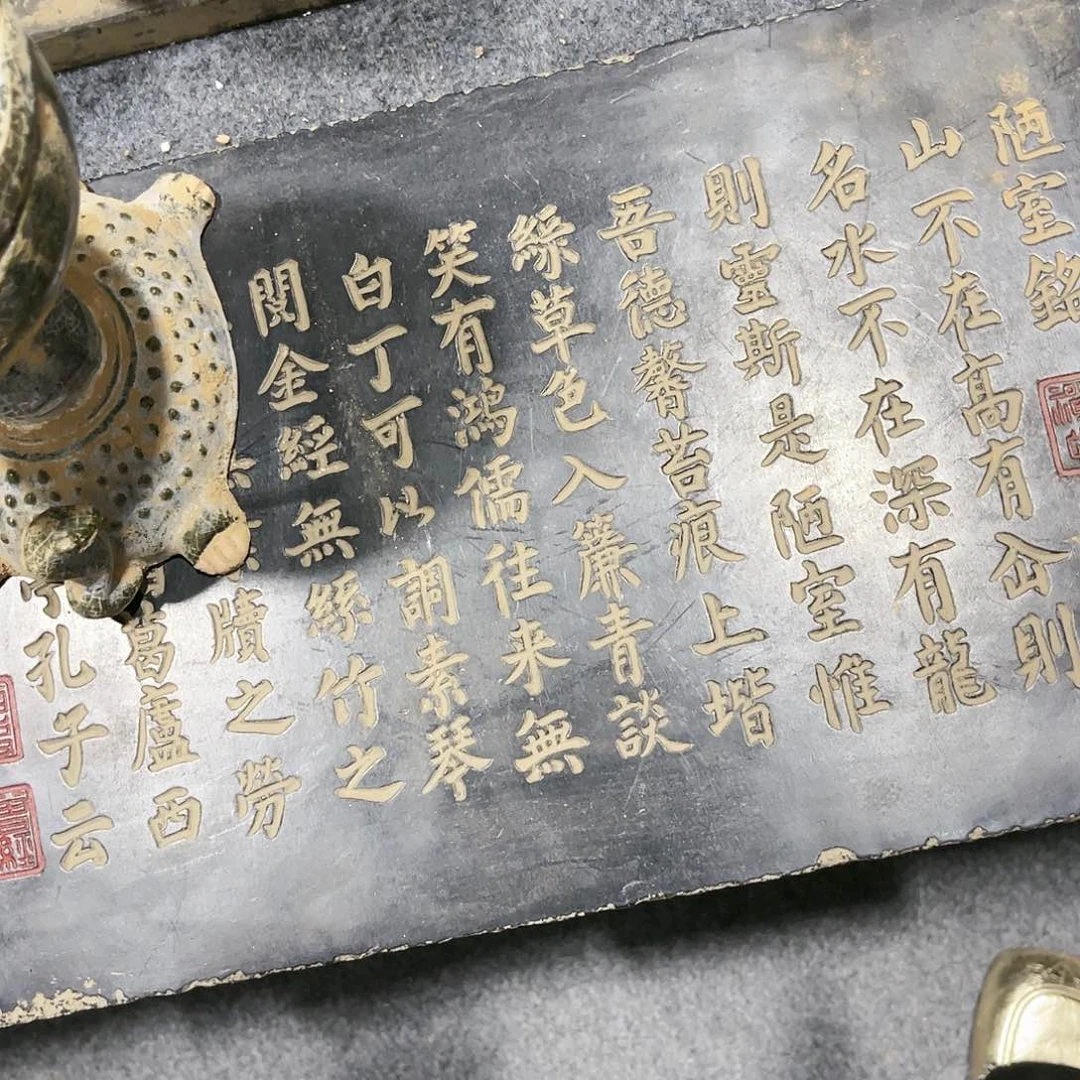 陋室銘
山不在高有仚則
名水不在深有龍
則靈斯是陋室惟
吾德馨苔痕上堦
綵草色入簾青談
笑有鴻儒往来無
白丁可以調素琴
閱金經無絲竹之
牘之勞
葛廬西
孔子云